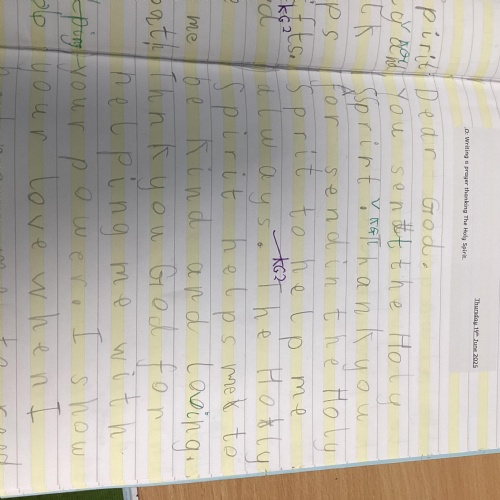 Thursday 19th June 2025
O: Writing a prayer thanking The Holy Spirit.
pirit: Dear God.
you sent the Holy
Sprint. Thank you
ps for sendin the Holy
fts. Sprit to help me
always. The Holy
Spirit helps me to
me be kind and loving.
Thnk you God for
helping me with
your power. I show
your love when I
KG2
KG2
KGT